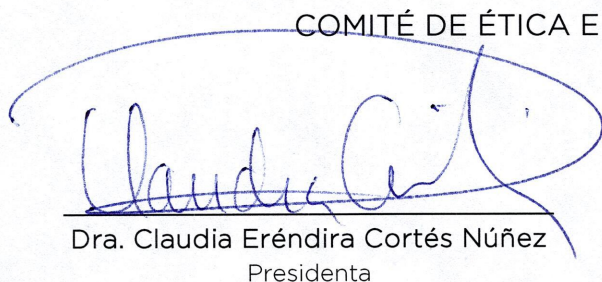 COMITÉ DE ÉTICA E
Claudia
Dra. Claudia Eréndira Cortés Núñez
Presidenta